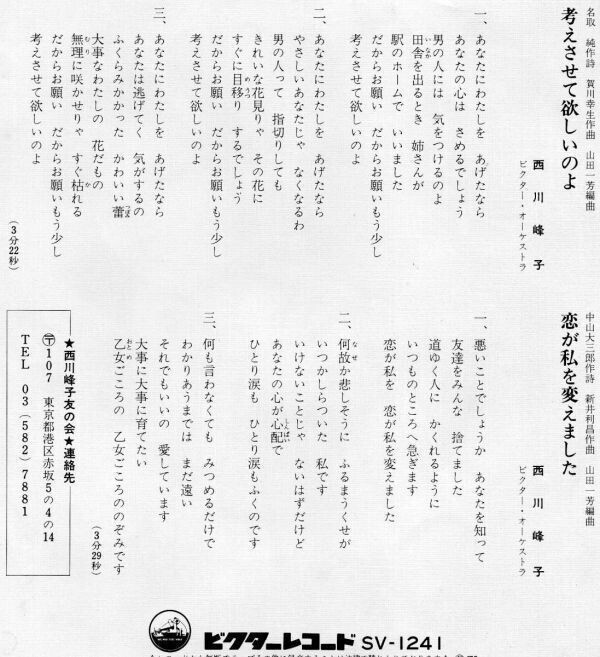 名取 純作詩 賀川幸生作曲 山田一芳編曲
考えさせて欲しいのよ
西川峰子
ビクター・オーケストラ
一、あなたにわたしを あげたなら
あなたの心は さめるでしょう
男の人には 気をつけるのよ
田舎を出るとき 姉さんが
駅のホームで いいました
だからお願い だからお願いもう少し
考えさせて欲しいのよ
二、あなたにわたしを あげたなら
やさしいあなたじゃ なくなるわ
男の人って 指切りしても
きれいな花見りゃ その花に
すぐに目移り するでしょう
だからお願い だからお願いもう少し
考えさせて欲しいのよ
三、あなたにわたしを あげたなら
あなたは逃げてく 気がするの
ふくらみかかった かわいい蕾
大事なわたしの 花だもの
無理に咲かせりゃ すぐ枯れる
だからお願い だからお願いもう少し
考えさせて欲しいのよ
(3分22秒)
中山大三郎作詩 新井利昌作曲 山田一芳編曲
恋が私を変えました
西川峰子
ビクター・オーケストラ
一、悪いことでしょうか あなたを知って
友達をみんな 捨てました
道ゆく人に かくれるように
いつものところへ急ぎます
恋が私を 恋が私を変えました
二、何故か悲しそうに ふるまうくせが
いつかしらついた 私です
いけないことじゃ ないはずだけど
あなたの心が心配で
ひとり涙も ひとり涙もふくのです
三、何も言わなくても みつめるだけで
わかりあうまでは まだ遠い
それでもいいの 愛しています
大事に大事に育てたい
乙女ごころの 乙女ごころののぞみです
(3分29秒)
★西川峰子友の会★連絡先
〒107 東京都港区赤坂5の4の14
TEL 03(582)7881
ビクターレコード SV-1241